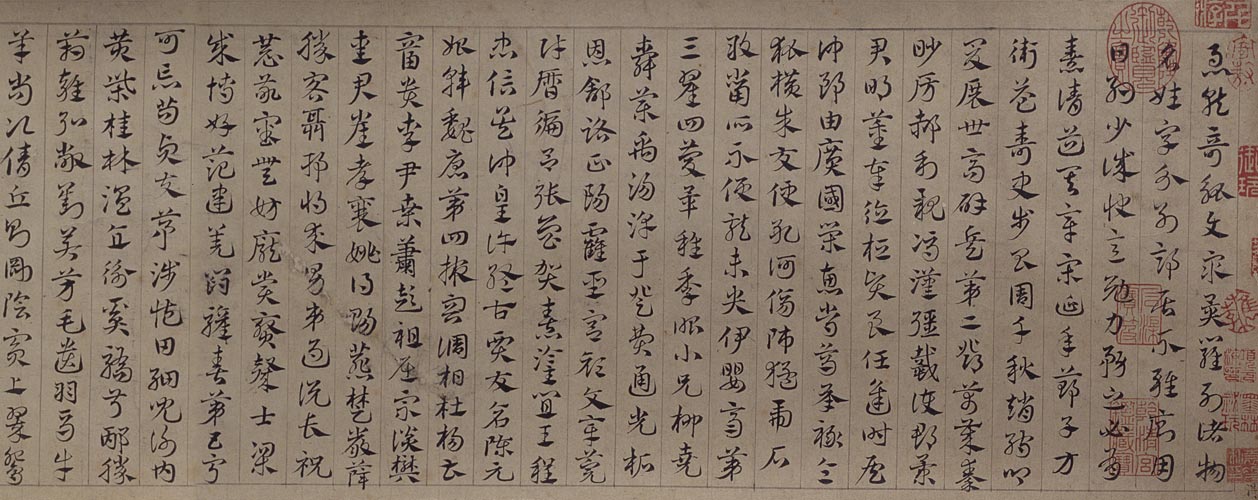 急就奇觚與衆異羅列諸物
名姓字分別部居不雜廁用
日約少誠快意勉力務之必有
憙請道其章宋延年鄭子方
衛益壽史步昌周千秋趙孺卿
爰展世高辟兵第二鄧萬歲秦
眇房郝利親馮漢彊戴護郡景
君明董奉德桓賢良任逢時侯
仲郎由廣國榮惠常烏承祿令
狐橫朱交便孔何傷師猛虎石
敢當所不侵龍未央伊嬰齊第
三翟回慶畢稚季昭小兄柳堯
舜藥禹湯淳于登費通光柘
恩舒路正陽霍聖宮顏文章莞
財歷偏呂張魯賀憙灌宜王程
忠信吳仲皇許終古賈友倉陳元
始韓魏唐第四掖容調柏杜楊曹
富貴李尹桑蕭彭祖屈宗談樊
愛君崔孝襄姚得賜燕楚嚴薛
勝客聶邗將求男弟過說長祝
恭敬審無妨龐賞贛聲士梁
成博好范建羌閻驩喜第五甯
可忘苟貞夫茅涉臧田細兒謝內
黃柴桂林溫直衡奚驕叔邴勝
箱雍弘敞劉若芳毛遺羽馬牛
羊尚次倩丘則剛陰賓上翠鴛